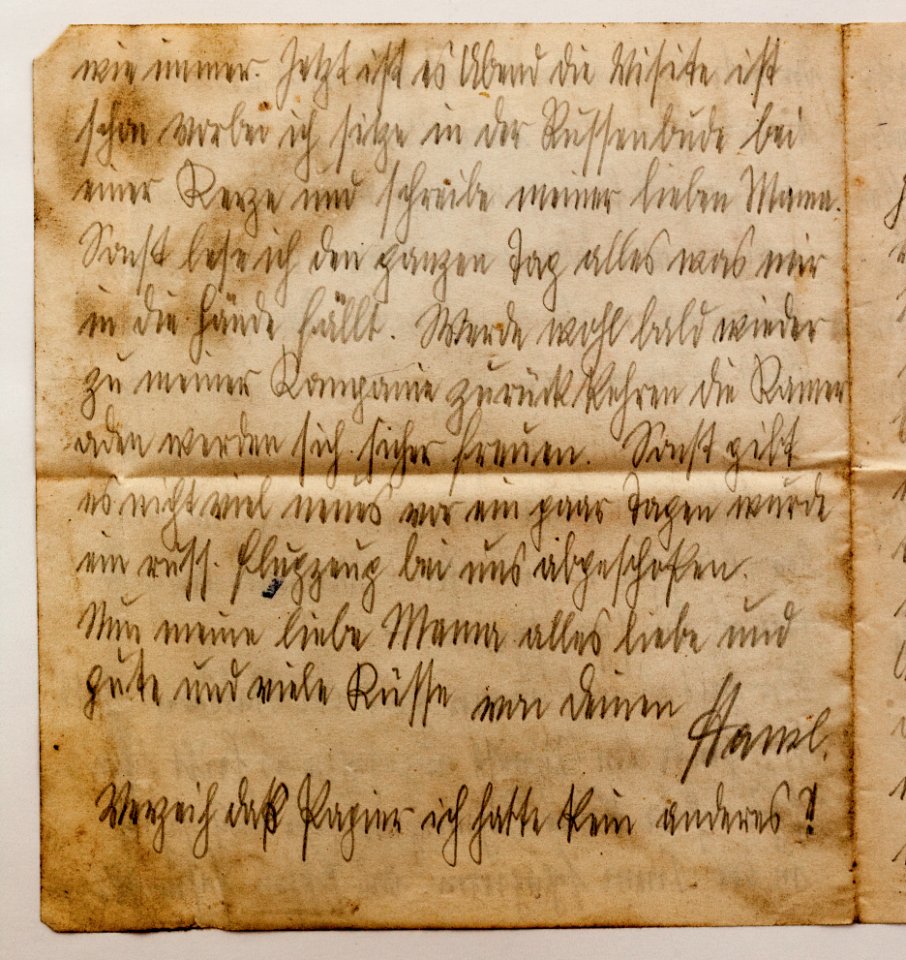 wie immer. Jetzt ist es Abend die Visite ist
schon vorbei ich sitze in der Russenbude bei
einer Kerze und schreibe meiner lieben Mama.
Sonst lese ich den ganzen Tag alles was mir
in die Hände fällt. Werde wohl bald wieder
zu meiner Kompanie zurück kehren die Kamer
aden werden sich sicher freuen. Sonst gibt
es nicht viel neues vor ein paar Tagen wurde
ein russ. Flugzeug bei uns abgeschoßen.
Nun meine liebe Mama alles liebe und
gute und viele Küsse von deinen
Verzeih daß Papier ich hatte kein anderes!